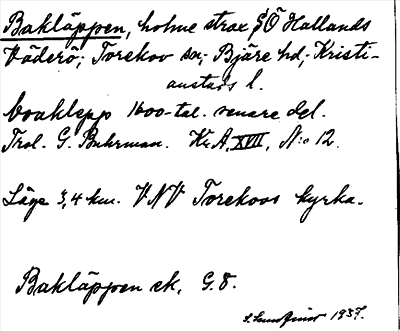 Bakläppen, holme strax SÖ Hallands
Väderö; Torekov sn; Bjäre hd; Kristi-
anstads l.
boaklepp 1600-tal. senare del.
Trol. G. Buhrman. Kr. A. XVII, N:o 12.
Läge 3,4 km. VNV Torekovs kyrka.
Bakläppen ek. G. 8.
1937.